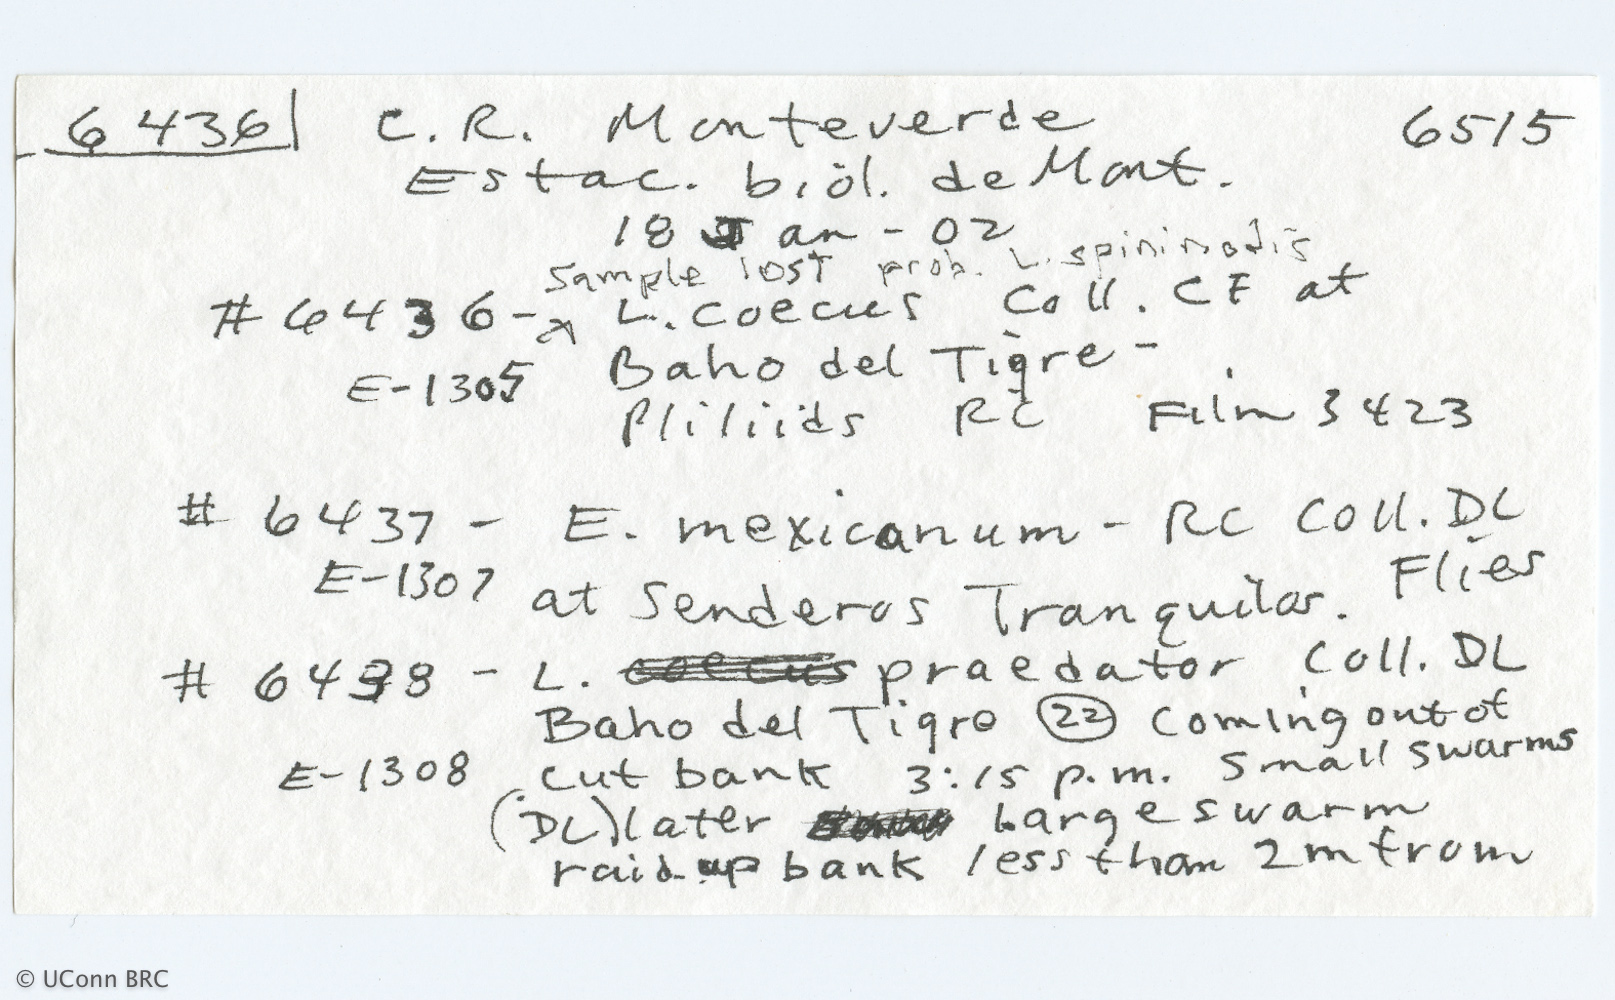 6436 C.R. Monteverde 6515
Estac. biol. de Mont.
18 Jan - 02
Sample lost prob. L. spininodis
#6436 - L. coecus Coll. CE at
E-1305 Baho del Tigre -
Pliliids RC Film 3423
# 6437 - E. mexicanum - RC Coll. DL
E-1307 at Senderos Tranquilos. Flies
# 6438 - L. coecus praedator Coll. DL
Baho del Tigre 22 Coming out of
E-1308 cut bank 3:15 p.m. Small swarms
(DL) later Large swarm
raid up bank less than 2m from
© UConn BRC